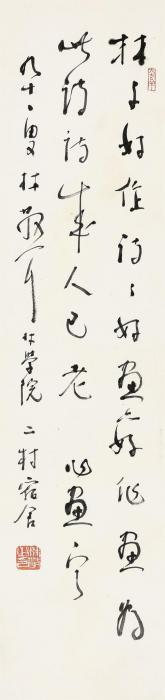 林子好作诗〻好画亦好作画为
此诗诗成人已老 画
九十一叟林散耳 學院二村宿舍